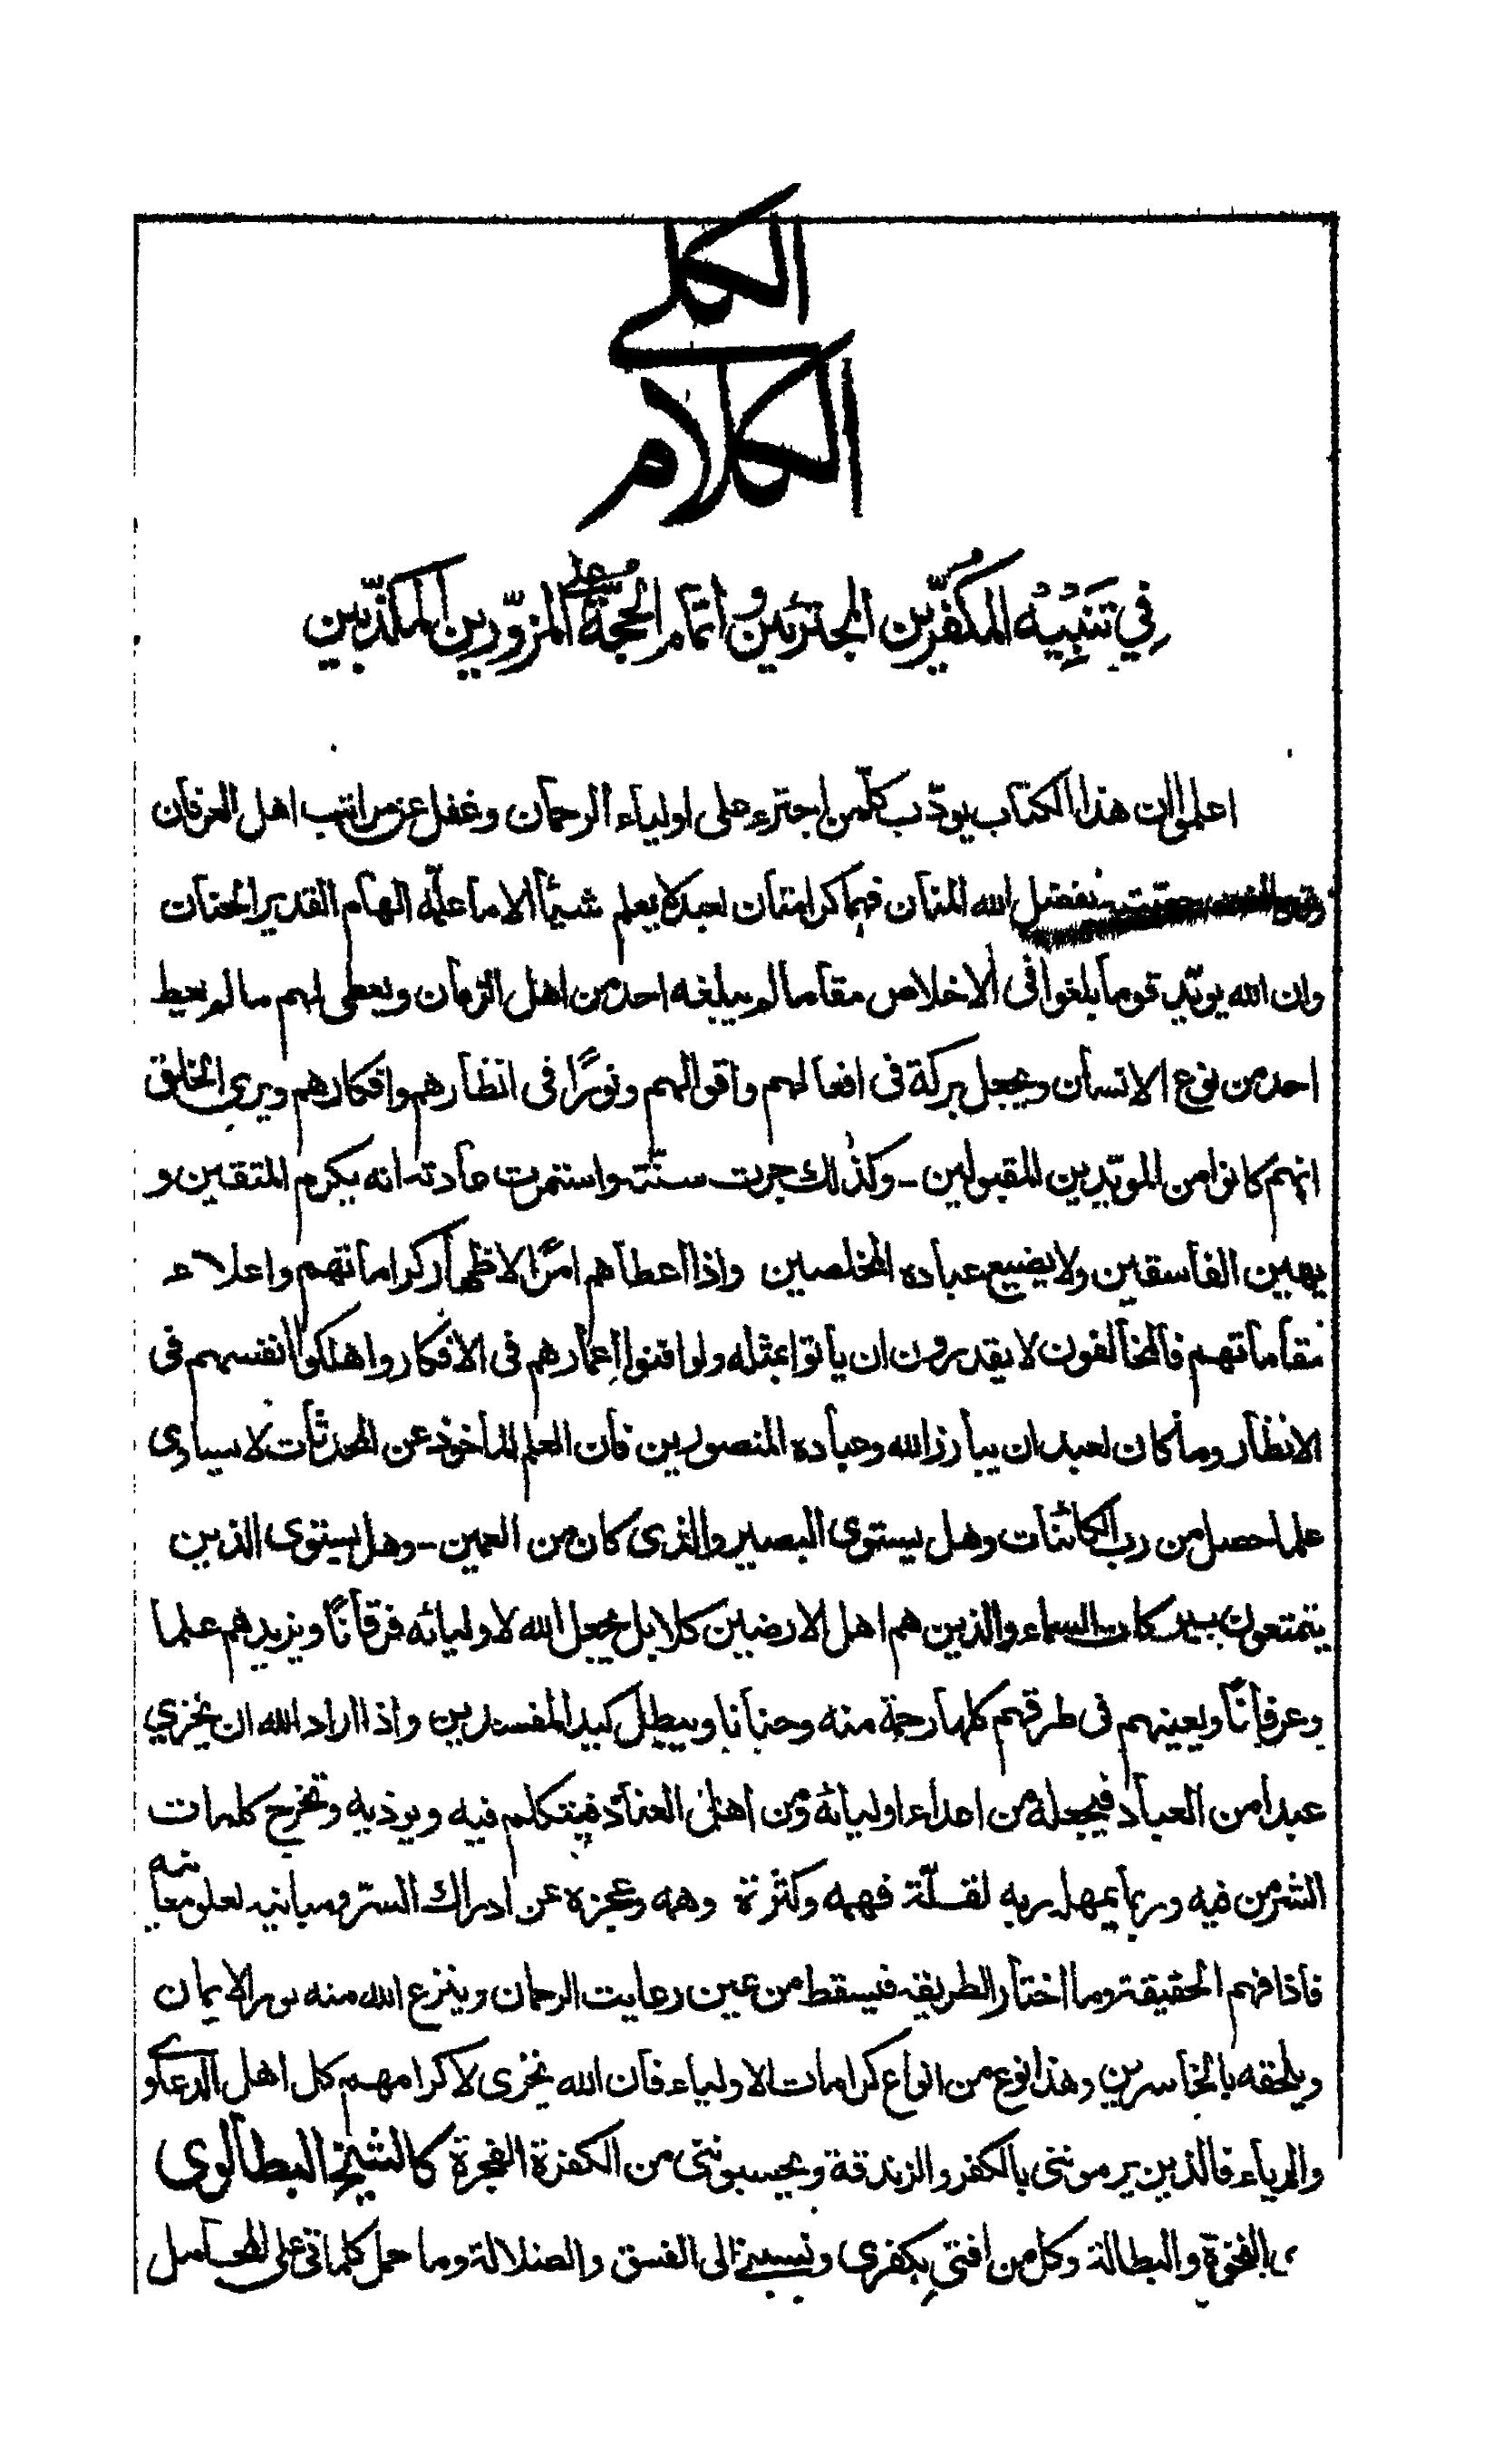 الكلى
الكلام
فِي تَنبِيهِ المُكفّرين المجترئين و اتمام الحجّة على المزوّرين المكذّبين
اعلموا ان هذا الكتاب يودّب كلّ من اجترء على اولياء الرحمان وغفل عن مراتب اهل العرفان
بفضل الله المنان فهما كرامتان لعبد لا يعلم شيئا الا ما علمه الهام القدير الحنان
وان الله يويّد قوما بلغوا فى الاخلاص مقاما لم يبلغه احد من اهل الزمان ويعطى لهم ما لم يعط
احد من نوع الانسان ويجعل بركة فى افعالهم واقوالهم ونورًا فى انظارهم وافكارهم ويرى الخلق
انهم كانوا من المويّدين المقبولين - وكذلك جرت سنّته واستمرت عادته انه يكرم المتقين و
يهين الفاسقين ولا يضيع عباده المخلصين واذا اعطاهم امرًا لاظهار كراماتهم واعلاء
مقاماتهم فالمخالفون لا يقدرون ان ياتوا بمثله ولو افنوا اعمارهم فى الافكار واهلكوا انفسهم فى
الانظار وما كان لعبد ان يبارز الله وعباده المنصورين فان العلم الماخوذ عن المحدثات لا يساوى
علما حصل من رب الكائنات وهل يستوى البصير والذى كان من العمين - وهل يستوى الذين
يتمتعون ببركات السماء والذين هم اهل الارضين كلا بل يجعل الله لاوليائه فرقانًا ويزيدهم علما
وعرفانًا ويعينهم فى طرقهم كلها رحمة منه وحنانا ويبطل كيد المفسدين واذا اراد الله ان يخزي
عبدا من العباد فيجعله من اعداء اوليائه ومن اهل العناد فيتكلم فيه ويوذيه وتخرج كلمات
الشر من فيه وربما يمهله ربه لقلّة فهمه وكثرة وهمه وعجزه عن ادراك السر ومبانيه لعلو معانيه
فاذا فهم الحقيقة وما اختار الطريقه فيسقط من عين رعايت الرحمان وينزع الله منه نور الايمان
ويلحقه بالخاسرين وهذا نوع من انواع كرامات الاولياء فان الله يخزى لاكرامهم كل اهل الدعاوى
والرياء فالذين يرموننى بالكفر والزندقة ويحسبوننى من الكفرة الفجرة كالشيخ البطالوى
النخوة والبطالة وكل من افتى بكفرى ونسبنى الى الفسق والضلالة وما حمل كلماتى على المحامل